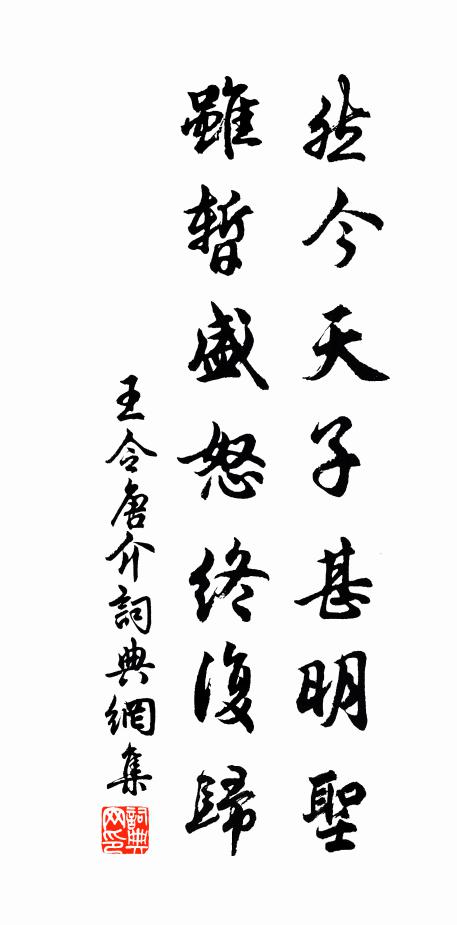 然今天子甚明聖
雖暫盛怒終復歸
王令唐介詞典網集
詞典網印